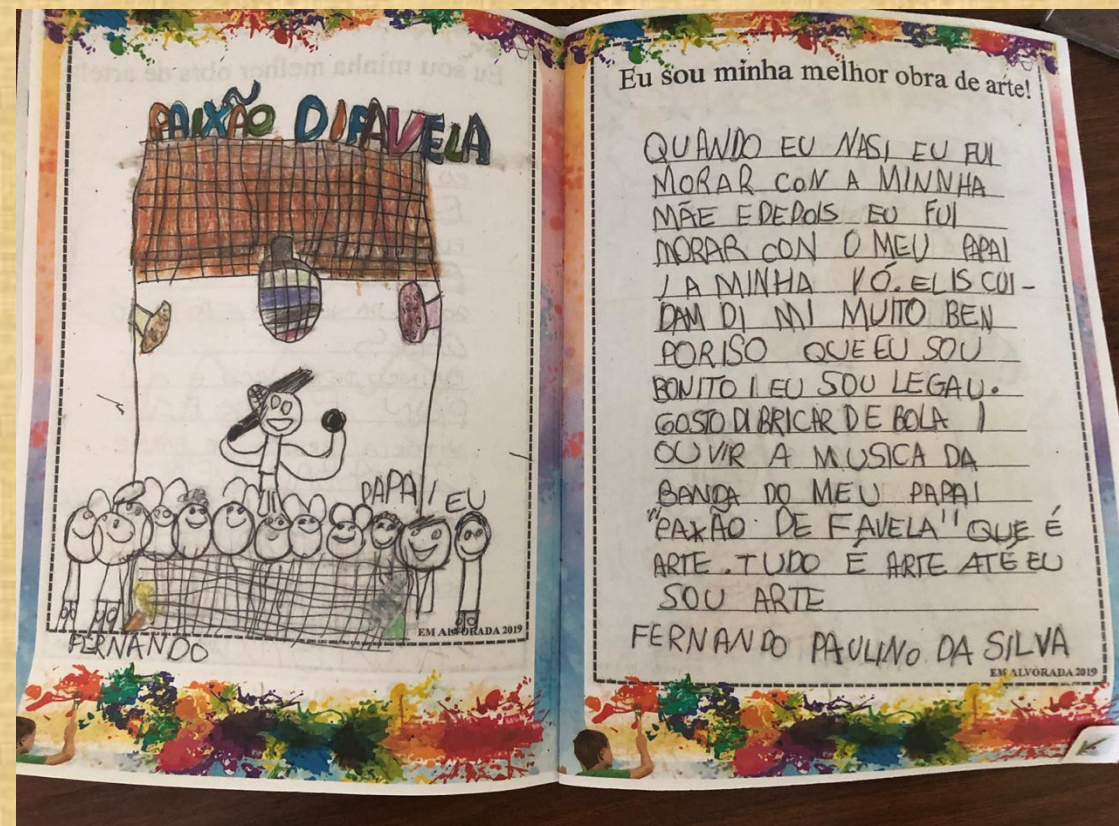 PAIXÃO DIFAVELA
PAPAI
EU
EM ALVORADA 2019
FERNANDO
Eu sou minha melhor obra de arte!
QUANDO EU NASI EU FUI
MORAR CON A MINNHA
MÃE EDEPOIS EU FUI
MORAR CON O MEU PAPAI
I A MINHA VÓ. ELIS CUI-
DAM DI MI MUITO BEN
PORISO QUE EU SOU
BONITO I EU SOU LEGAU.
GOSTO DI BRICAR DE BOLA I
OUVIR A MUSICA DA
BANDA DO MEU PAPAI
"PAXÃO DE FAVELA" QUE É
ARTE. TUDO É ARTE ATÉ EU
SOU ARTE
FERNANDO PAULINO DA SILVA
EM ALVORADA 2019